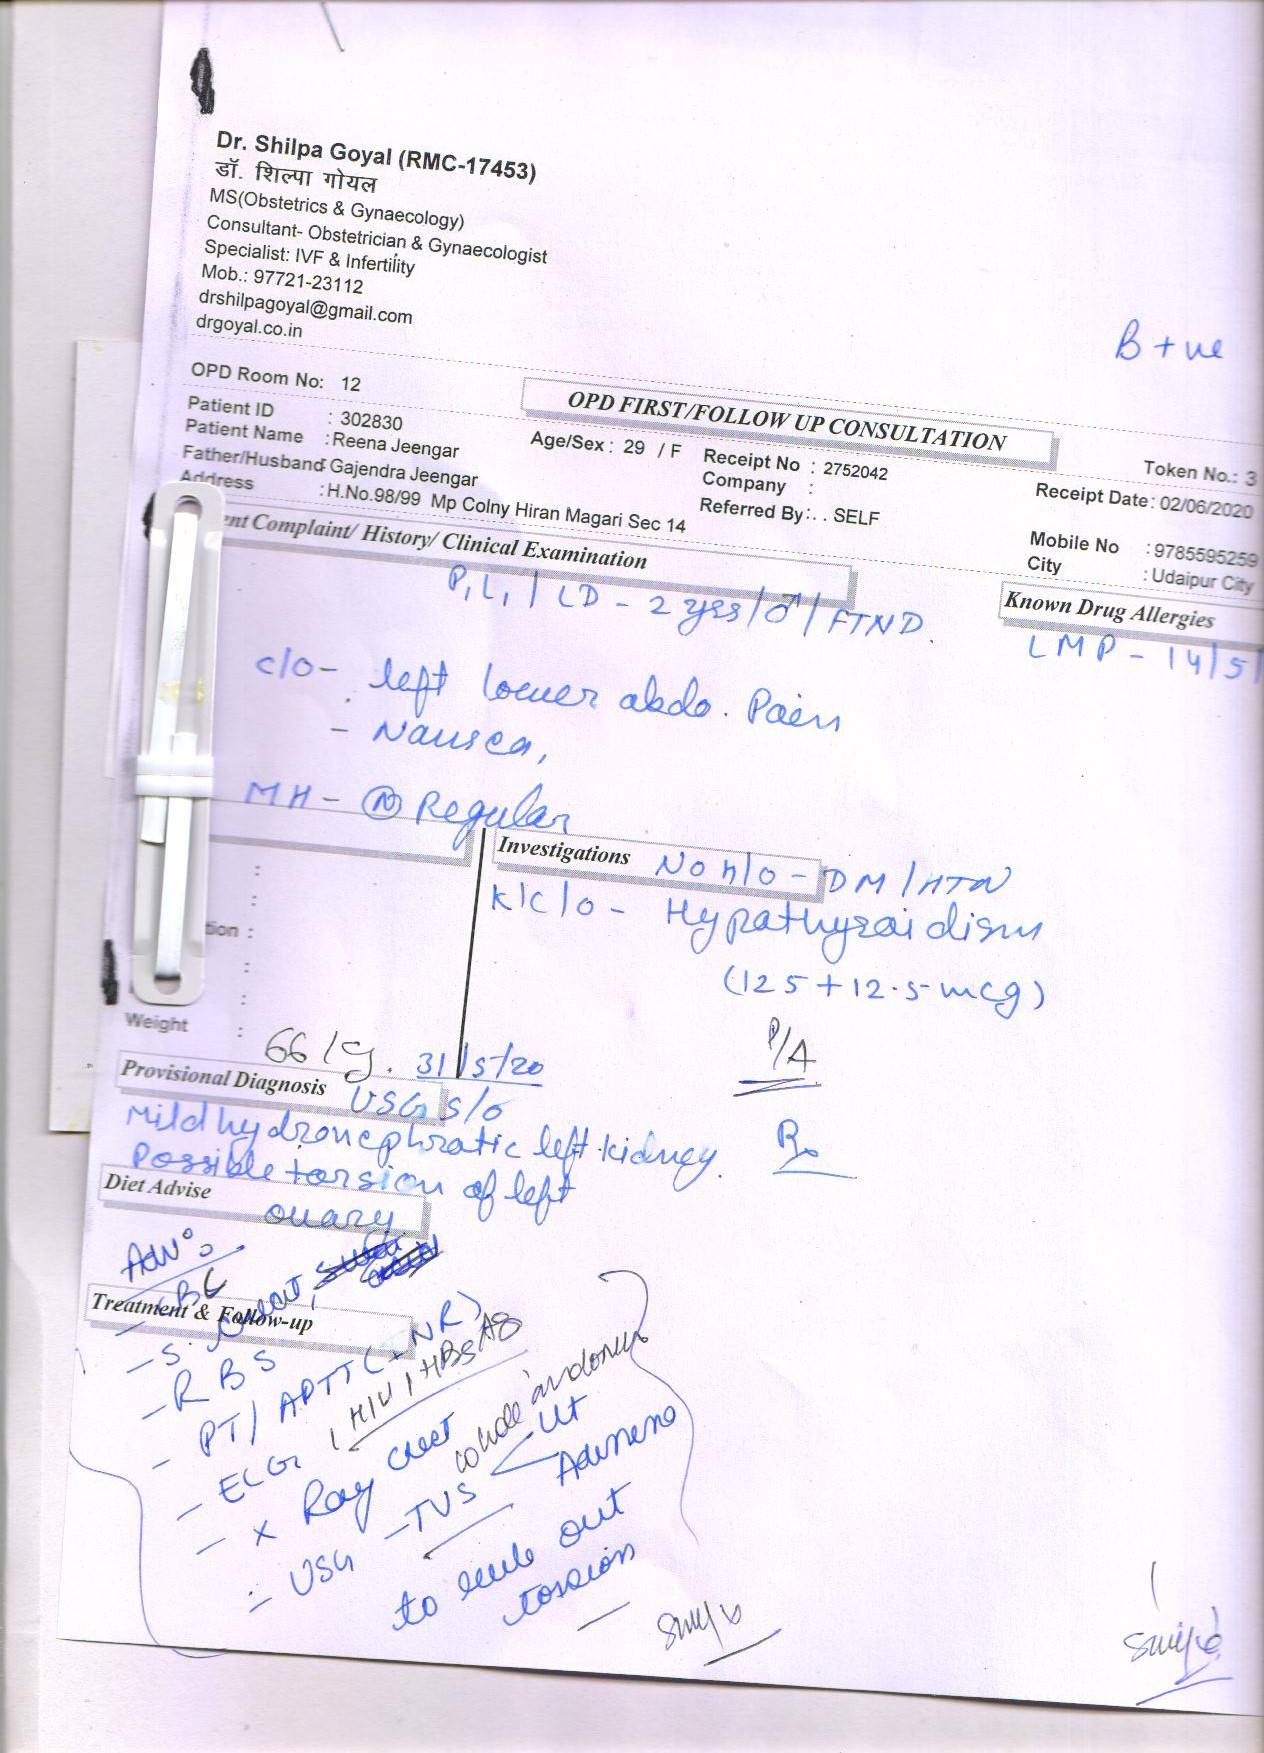 Dr. Shilpa Goyal (RMC-17453)
डॉ. शिल्पा गोयल
MS(Obstetrics & Gynaecology)
Consultant- Obstetrician & Gynaecologist
Specialist: IVF & Infertility
Mob.: 97721-23112
drshilpagoyal@gmail.com
drgoyal.co.in
B +ve
OPD Room No: 12
OPD FIRST/FOLLOW UP CONSULTATION
Token No.: 3
Patient ID : 302830
Patient Name : Reena Jeengar
Age/Sex : 29 / F
Receipt No : 2752042
Receipt Date: 02/06/2020
Father/Husband: Gajendra Jeengar
Company :
Address : H.No.98/99 Mp Colny Hiran Magari Sec 14
Referred By: . . SELF
Mobile No : 9785595259
City : Udaipur City
ent Complaint/ History/ Clinical Examination
Known Drug Allergies
P1L1 / LD - 2 yrs / ♂ / FTND.
LMP - 14/5/
c/o - left lower abdo. Pain
- Nausea,
MH - (N) Regular
Investigations
No h/o - DM / HTN
K/c/o - Hypothyroidism
(125 + 12.5 mcg)
tion :
Weight : 66 kg.
P/A
31/5/20
Provisional Diagnosis
USG s/o
Mild hydronephrotic left kidney.
Rx
Possible torsion of left
ovary
Diet Advise
Adv:
- CBC
Treatment & Follow-up
- RBS
- PT/ APTT (INR)
HIV / HBsAg
- ECG
- X Ray chest
- USG - TVS
whole abdomen
Ut
Adnexa
to rule out
torsion